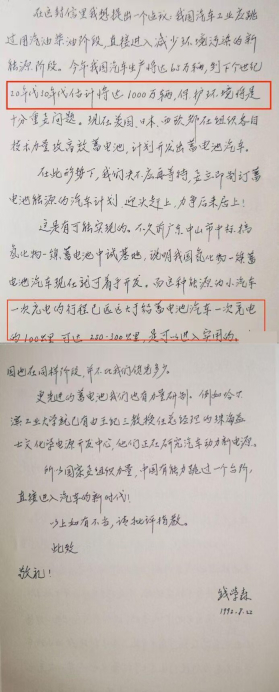 在这封信里我想提出一个建议：我国汽车工业应跳
过用汽油柴油阶段，直接进入减少环境污染的新
能源阶段。今年我国汽车生产将达60万辆，到下个世纪
20年代30年代估计将达1000万辆，保护环境将是
十分重要问题。现在美国、日本、西欧都在组织各自
技术力量攻高效蓄电池，计划开发出蓄电池汽车。
在此形势下，我们决不应再等待，要立即制订蓄
电池能源的汽车计划，迎头赶上，力争后来居上！
这是有可能实现的。不久前广东中山市中标搞
氢化物—镍蓄电池中试基地，说明我国氢化物—镍蓄
电池汽车现在就可着手开发。而这种能源的小汽车
一次充电的行程已远远大于铅蓄电池汽车一次充电
的100公里，可达250-300公里，是可以进入实用的。
国也在同样阶段，并不比我们领先多少。
更先进的蓄电池我们也有力量研制。例如哈尔
滨工业大学就已有由王纪三教授任总经理的珠海益
士文化学电源开发中心，他们正在研究汽车动力新电源。
所以国家要组织力量，中国有能力跳过一个台阶，
直接进入汽车的新时代！
以上如有不当，请批评指教。
此致
敬礼！
钱学森
1992.8.22